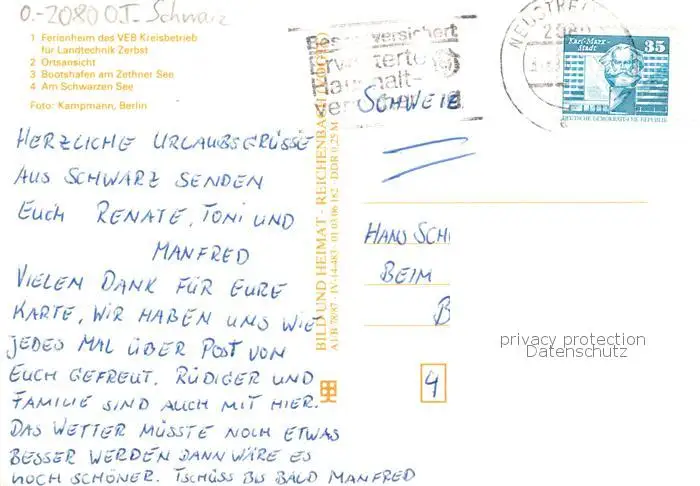 O.-2080 O.T. Schwarz
1 Ferienheim des VEB Kreisbetrieb
für Landtechnik Zerbst
2 Ortsansicht
3 Bootshafen am Zethner See
4 Am Schwarzen See
Foto: Kampmann, Berlin
HERZLICHE URLAUBSGRÜSSE
AUS SCHWARZ SENDEN
EUCH RENATE, TONI UND
MANFRED
VIELEN DANK FÜR EURE
KARTE, WIR HABEN UNS WIE
JEDES MAL ÜBER POST VON
EUCH GEFREUT. RÜDIGER UND
FAMILIE SIND AUCH MIT HIER.
DAS WETTER MÜSSTE NOCH ETWAS
BESSER WERDEN DANN WÄRE ES
NOCH SCHÖNER. TSCHÜSS BIS BALD MANFRED
BILD UND HEIMAT · REICHENBACH
A1/B 78/87 · IV-14-483 · 01 03 06 182 · DDR 0,25 M
versichert
Erweiterte
Haushalt-
NEUSTREL
Karl-Marx-
Stadt
35
DEUTSCHE DEMOKRATISCHE REPUBLIK
SCHWEIZ
HANS SCH
BEIM
B
4
privacy protection
Datenschutz